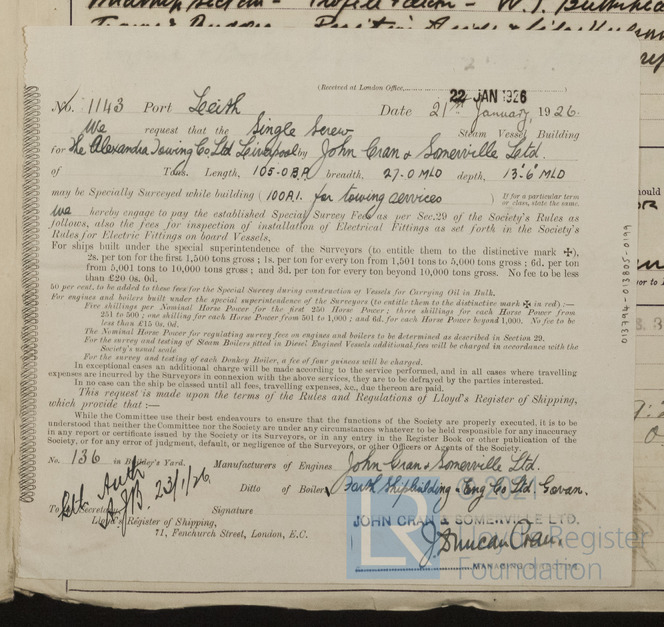 (Received at London Office,
22 JAN 1926
No. 1143 Port Leith Date 21st January, 1926.
We request that the Single Screw Steam Vessel Building
for The Alexandra Towing Co Ltd Liverpool by John Cran & Somerville Ltd.
of Tons. Length, 105.0 B.P. breadth, 27.0 MLD depth, 13'.6" MLD
may be Specially Surveyed while building (100A1. for towing services) If for a particular term or class, state the same.
We hereby engage to pay the established Special Survey Fees as per Sec. 29 of the Society's Rules as
follows, also the fees for inspection of installation of Electrical Fittings as set forth in the Society's
Rules for Electric Fittings on board Vessels,
For ships built under the special superintendence of the Surveyors (to entitle them to the distinctive mark ✠),
2s. per ton for the first 1,500 tons gross; 1s. per ton for every ton from 1,501 tons to 5,000 tons gross; 6d. per ton
from 5,001 tons to 10,000 tons gross; and 3d. per ton for every ton beyond 10,000 tons gross. No fee to be less
than £20 0s. 0d.
50 per cent. to be added to these fees for the Special Survey during construction of Vessels for Carrying Oil in Bulk.
For engines and boilers built under the special superintendence of the Surveyors (to entitle them to the distinctive mark ✠ in red) :—
Five shillings per Nominal Horse Power for the first 250 Horse Power; three shillings for each Horse Power from
251 to 500; one shilling for each Horse Power from 501 to 1,000; and 6d. for each Horse Power beyond 1,000. No fee to be
less than £15 0s. 0d.
The Nominal Horse Power for regulating survey fees on engines and boilers to be determined as described in Section 29.
For the survey and testing of Steam Boilers fitted in Diesel Engined Vessels additional fees will be charged in accordance with the
Society's usual scale
For the survey and testing of each Donkey Boiler, a fee of four guineas will be charged.
In exceptional cases an additional charge will be made according to the service performed, and in all cases where travelling
expenses are incurred by the Surveyors in connexion with the above services, they are to be defrayed by the parties interested.
In no case can the ship be classed until all fees, travelling expenses, &c., due thereon are paid.
This request is made upon the terms of the Rules and Regulations of Lloyd's Register of Shipping,
which provide that :—
While the Committee use their best endeavours to ensure that the functions of the Society are properly executed, it is to be
understood that neither the Committee nor the Society are under any circumstances whatever to be held responsible for any inaccuracy
in any report or certificate issued by the Society or its Surveyors, or in any entry in the Register Book or other publication of the
Society, or for any error of judgment, default, or negligence of the Surveyors, or other Officers or Agents of the Society.
No. 136 in Builder's Yard. Manufacturers of Engines John Cran & Somerville Ltd.
Ditto of Boilers Shipbuilding & Eng Co Ltd. Govan.
23/1/26
To the Secretary Signature JOHN CRAN & SOMERVILLE LTD.
Lloyd's Register of Shipping, J Duncan Cran
71, Fenchurch Street, London, E.C. MANAGING DIRECTOR
© 2021
LR Lloyd's Register
Foundation
013794-013805-0199